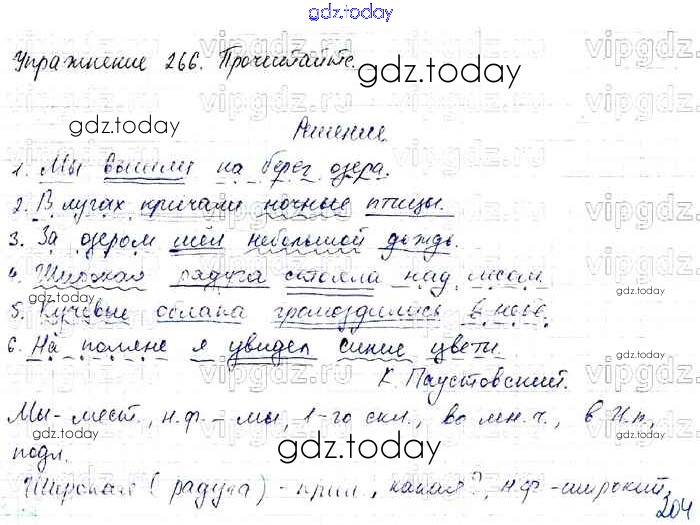 gdz.today
Упражнение 266. Прочитайте.
Решение
1. Мы вышли на берег озера.
2. В лугах кричали ночные птицы.
3. За озером шёл небольшой дождь.
4. Широкая радуга стояла над лесом.
5. Кучевые облака громоздились в небе.
6. На поляне я увидел синие цветы.
К. Паустовский.
Мы - мест., н.ф. - мы, 1-го скл., во мн. ч., в И.п.,
подл.
Широкая (радуга) - прил., какая?, н.ф - широкий,
204
gdz.today
gdz.today
gdz.today
gdz.today
gdz.today
gdz.today
gdz.today
gdz.today
vipgdz.ru